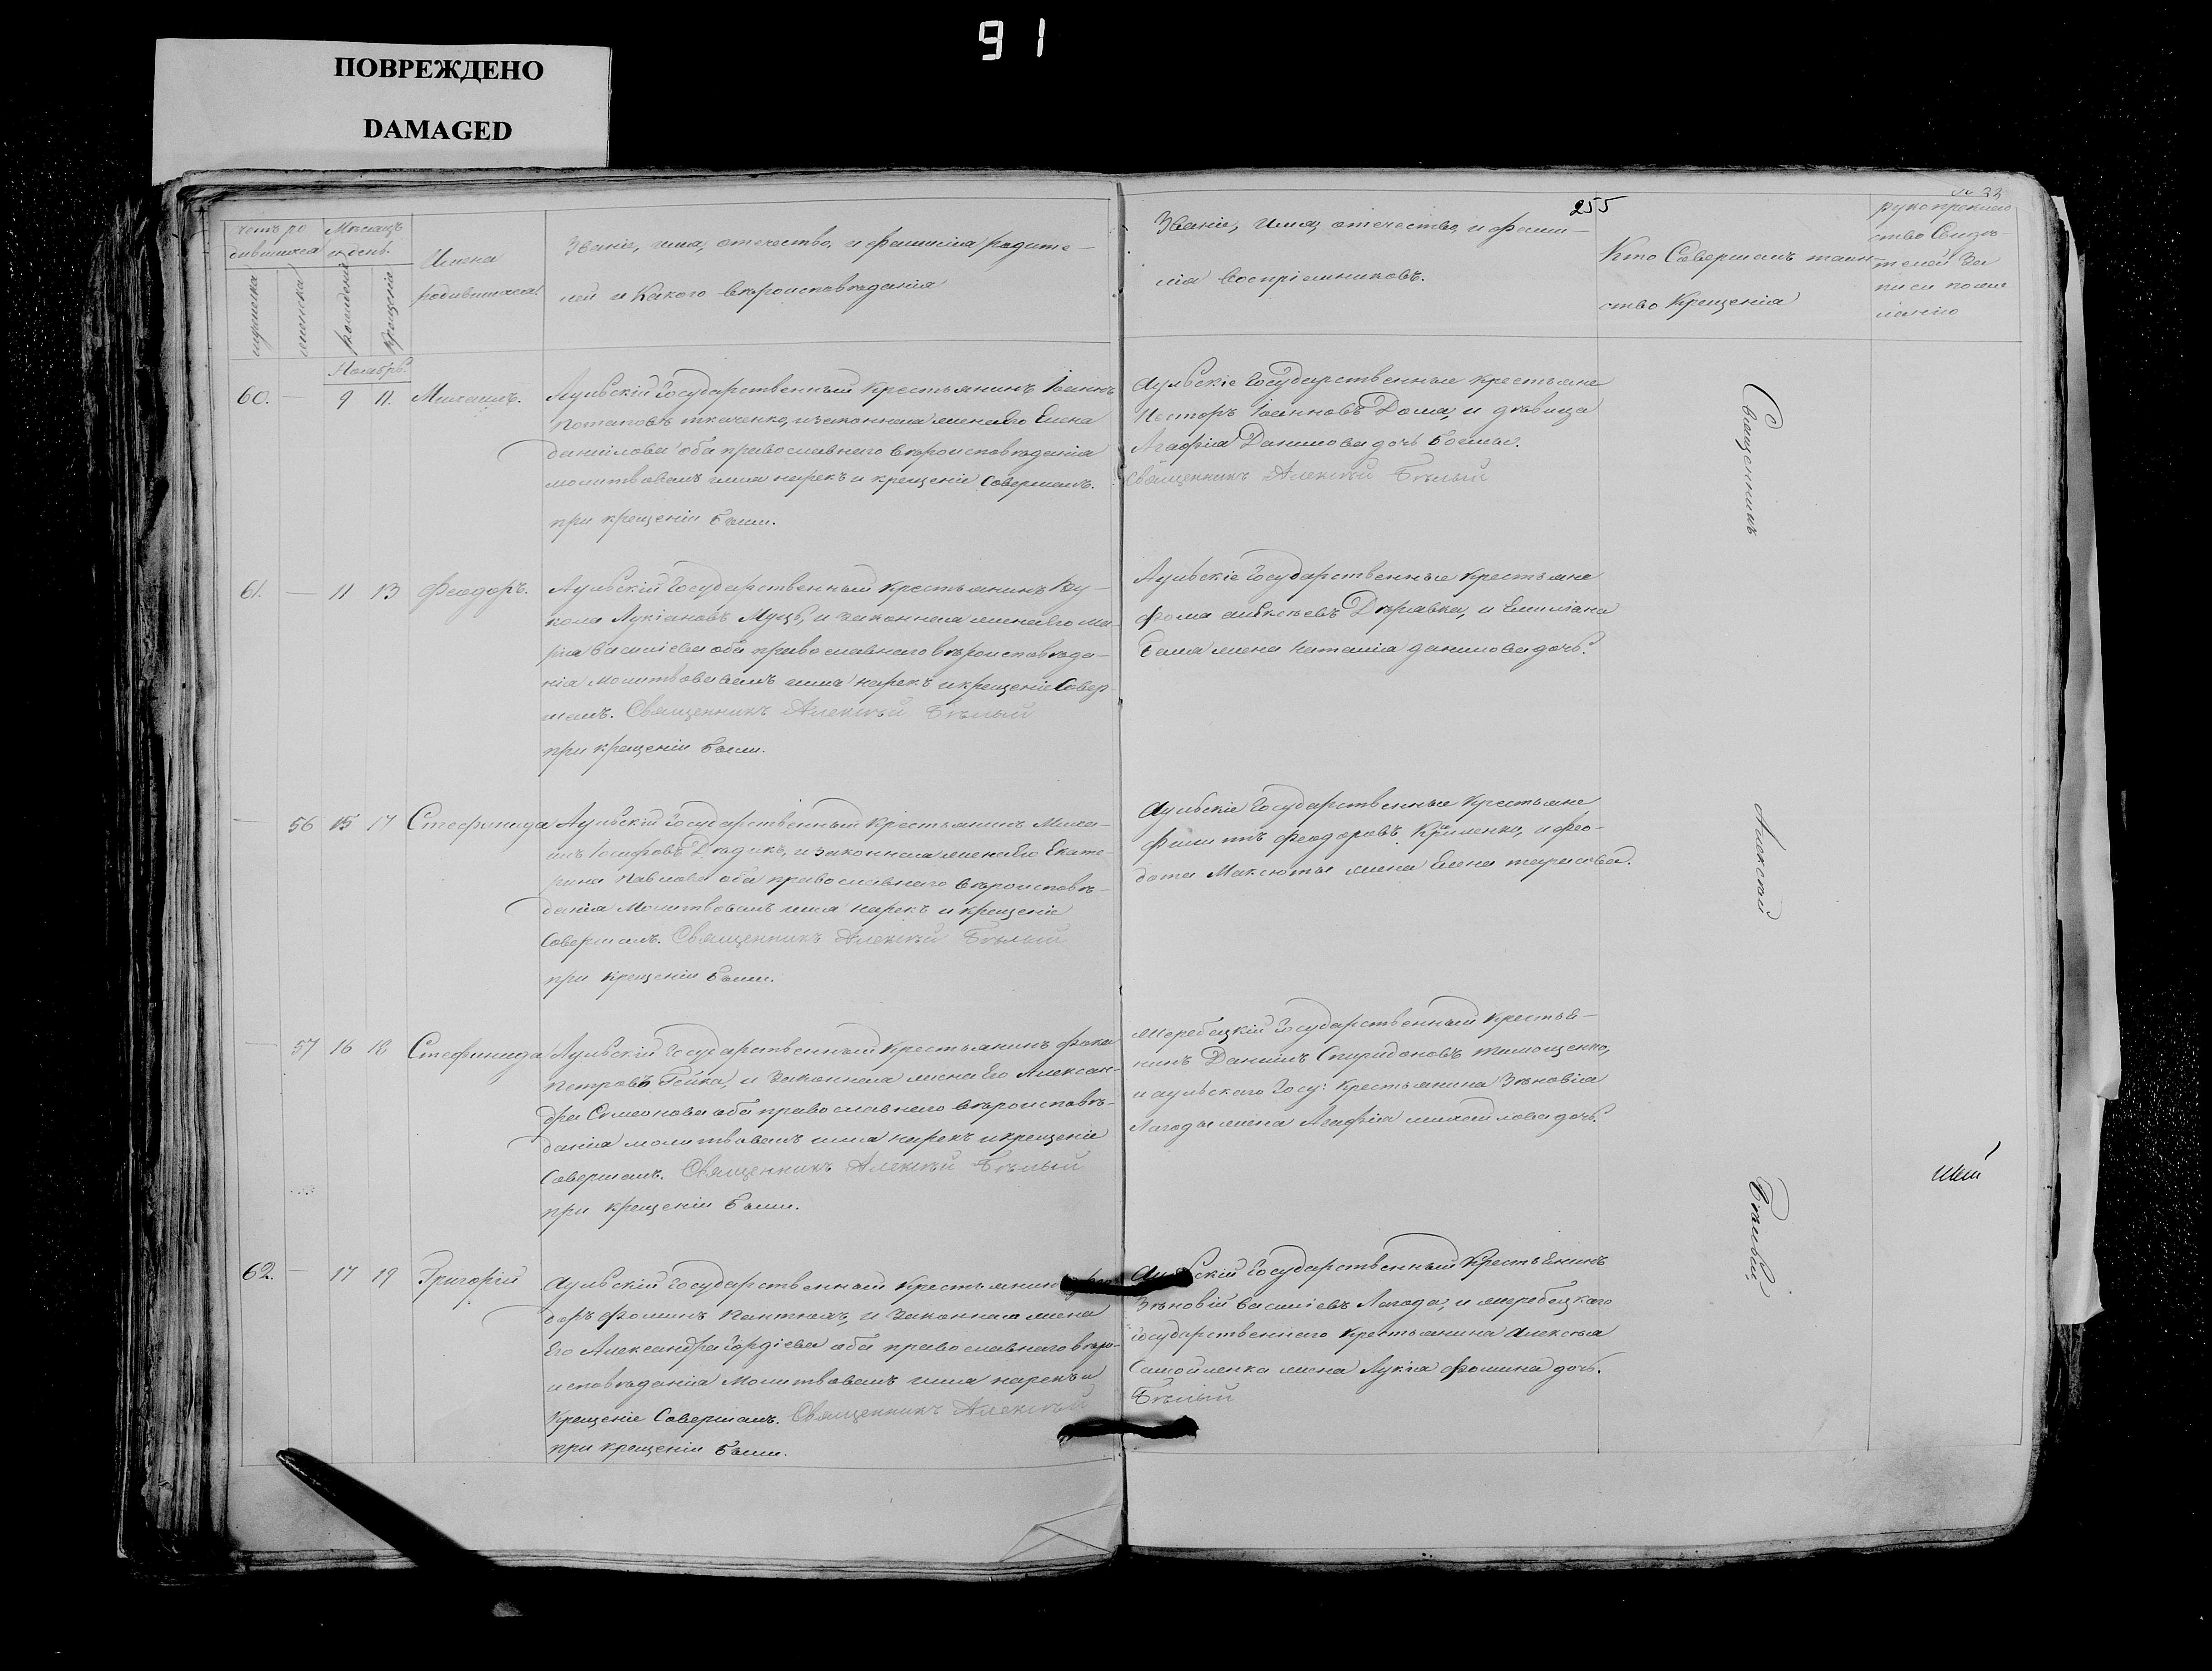 91
ПОВРЕЖДЕНО
DAMAGED
255
№ 33
Счетъ ро
дившихся
Мѣсяцъ
и день.
мужеска
женска
рожденія
крещенія
Имена
родившихся.
Званіе, имя, отечество, и фамилія родите-
лей и Какого вѣроисповѣданія
Званіе, имя, отечество, и фами-
лія воспріемниковъ.
Кто Совершалъ таин-
ство Крещенія
рукоприклад
ство Свидѣ-
телей За
писи по же
ланію
Ноябрь.
60. — 9 11. Михаилъ.
Аульскій Государственный Крестьянинъ Іоаннъ
Потаповъ ткаченко, и законная жена его Елена
даниилова оба православнаго вѣроисповѣданія
молитвовалъ имя нарекъ и крещеніе Совершалъ.
при крещеніи были.
Аульскіе Государственные крестьяне
Несторъ Іоанновъ Дома, и дѣвица
Агафія Данилова дочь
Священникъ Алексѣй Бѣлый
61. — 11 13 Феодоръ.
Аульскій Государственный Крестьянинъ Ву-
кола Лукіановъ Муцъ, и законная жена его Ма-
рія василіева оба православнаго вѣроисповѣда-
нія Молитвовалъ имя нарекъ и крещеніе Совер-
шалъ. Священникъ Алексѣй Бѣлый
при крещеніи были.
Аульскіе Государственные Крестьяне
фома алексѣевъ Державка, и Емиліана
жена наталія данилова дочь.
— 56 15 17 Стефанида
Аульскій Государственный Крестьянинъ Миха-
илъ Іосифовъ Дѣдикъ, и законная жена его Екате-
рина павлова оба православнаго вѣроисповѣ-
данія Молитвовалъ имя нарекъ и крещеніе
Совершалъ. Священникъ Алексѣй Бѣлый
при крещеніи были.
Аульскіе Государственные Крестьяне
филиппъ феодоровъ Криленко, и фео-
дота Максюты жена Елена тарасова.
— 57 16 18 Стефанида
Аульскій Государственный Крестьянинъ фока
Петровъ Гейка, и Законная жена Его Алексан-
дра Симеонова оба православнаго вѣроисповѣ-
данія молитвовалъ имя нарекъ и крещеніе
Совершалъ. Священникъ Алексѣй Бѣлый
при крещеніи были.
Жеребецкій Государственный Крестья-
нинъ Даніилъ Спиридоновъ тимошенко,
и аульскаго Госу: Крестьянина Зѣновія
Лагоды жена Агафія михайлова дочь.
62. — 17 19 Григорій
Аульскій Государственный Крестьянинъ фео-
доръ фоминъ Пантюхъ, и Законная жена
Его Александра Гордіева оба православнаго вѣро-
исповѣданія Молитвовалъ имя нарекъ и
Крещеніе Совершалъ. Священникъ Алексѣй
при крещеніи были.
Аульскій Государственный Крестьянинъ
Зѣновій василіевъ Лагода, и жеребецкаго
государственнаго Крестьянина Алексѣя
Самойленка жена Лукія фомина дочь.
Бѣлый
Священникъ
Алексѣй
Бѣлый